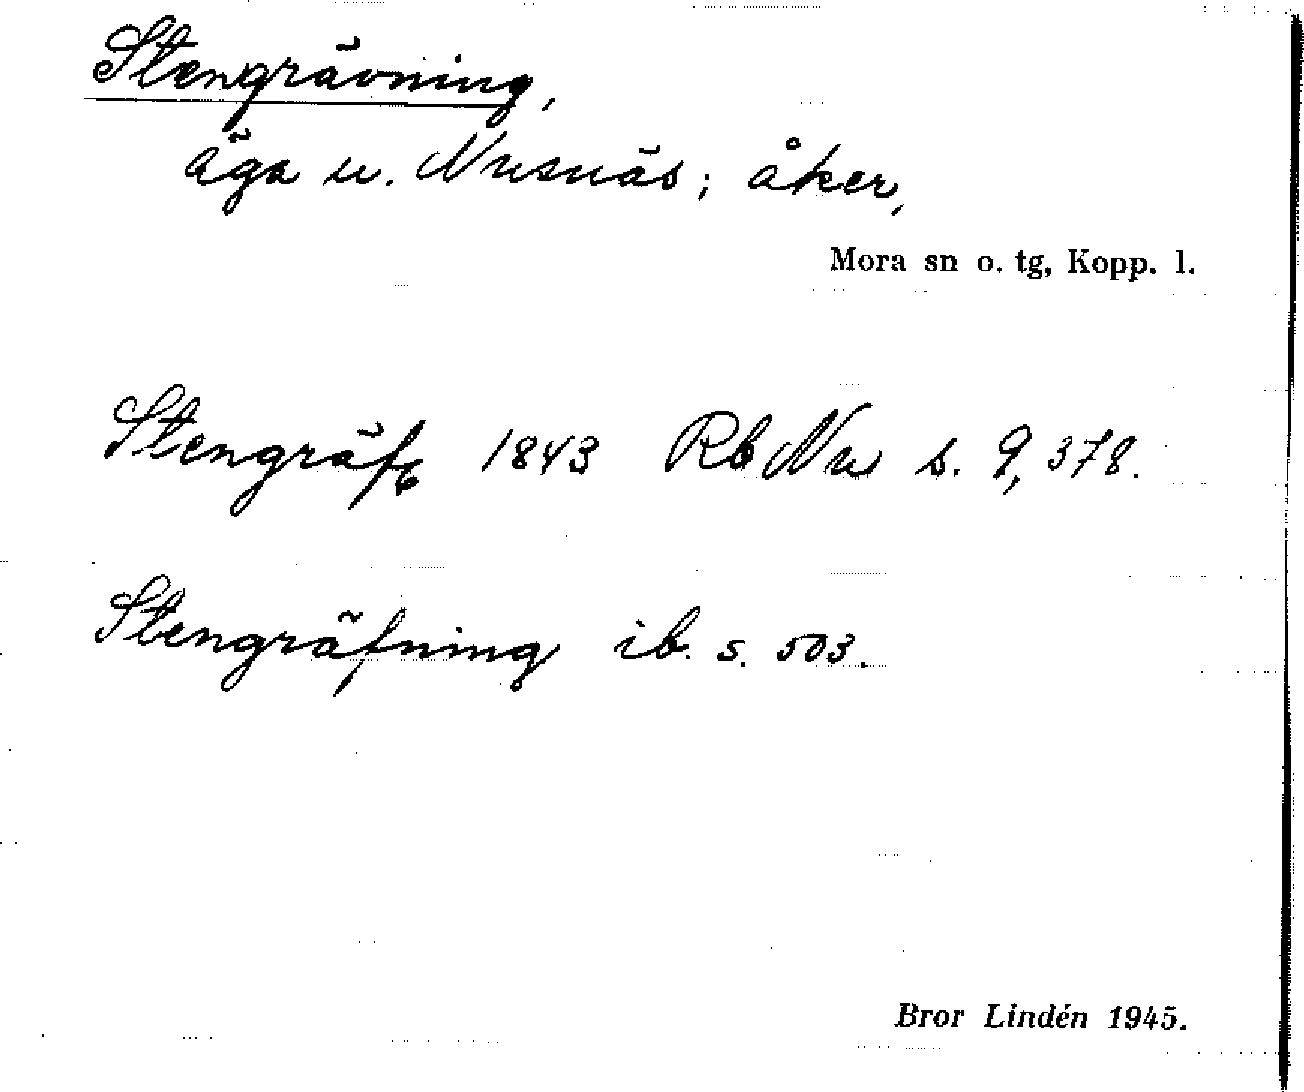 Stengrävning,
äga u. Nusnäs; åker,
Mora sn o. tg, Kopp. l.
Stengräf 1843 Rb Nu s. 9, 378.
Stengräfning ib. s. 503.
Bror Lindén 1945.